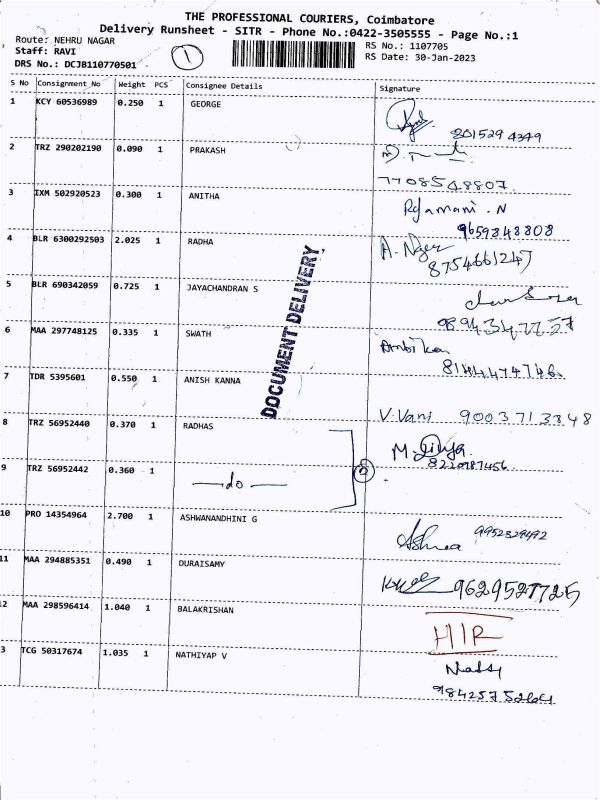 THE PROFESSIONAL COURIERS, Coimbatore
Delivery Runsheet - SITR - Phone No.:0422-3505555 - Page No.:1
Route: NEHRU NAGAR
Staff: RAVI
DRS No.: DCJB110770501
1
RS No.: 1107705
RS Date: 30-Jan-2023
S No Consignment_No Weight PCS Consignee Details Signature
1 KCY 60536989 0.250 1 GEORGE
2 TRZ 290202190 0.090 1 PRAKASH
7708548807
3 IXM 502920523 0.300 1 ANITHA Rajamani. N
9659848808
4 BLR 6300292503 2.025 1 RADHA
8754661247
5 BLR 690342059 0.725 1 JAYACHANDRAN S
DOCUMENT DELIVERY
6 MAA 297748125 0.335 1 SWATH Ambika
8144474746
7 TDR 5395601 0.550 1 ANISH KANNA V. Vani 9003713348
8 TRZ 56952440 0.370 1 RADHAS
9 TRZ 56952442 0.360 1 —do—
10 PRO 14354964 2.700 1 ASHWANANDHINI G
11 MAA 294885351 0.490 1 DURAISAMY 9629527725
12 MAA 298596414 1.040 1 BALAKRISHAN
3 TCG 50317674 1.035 1 NATHIYAP V